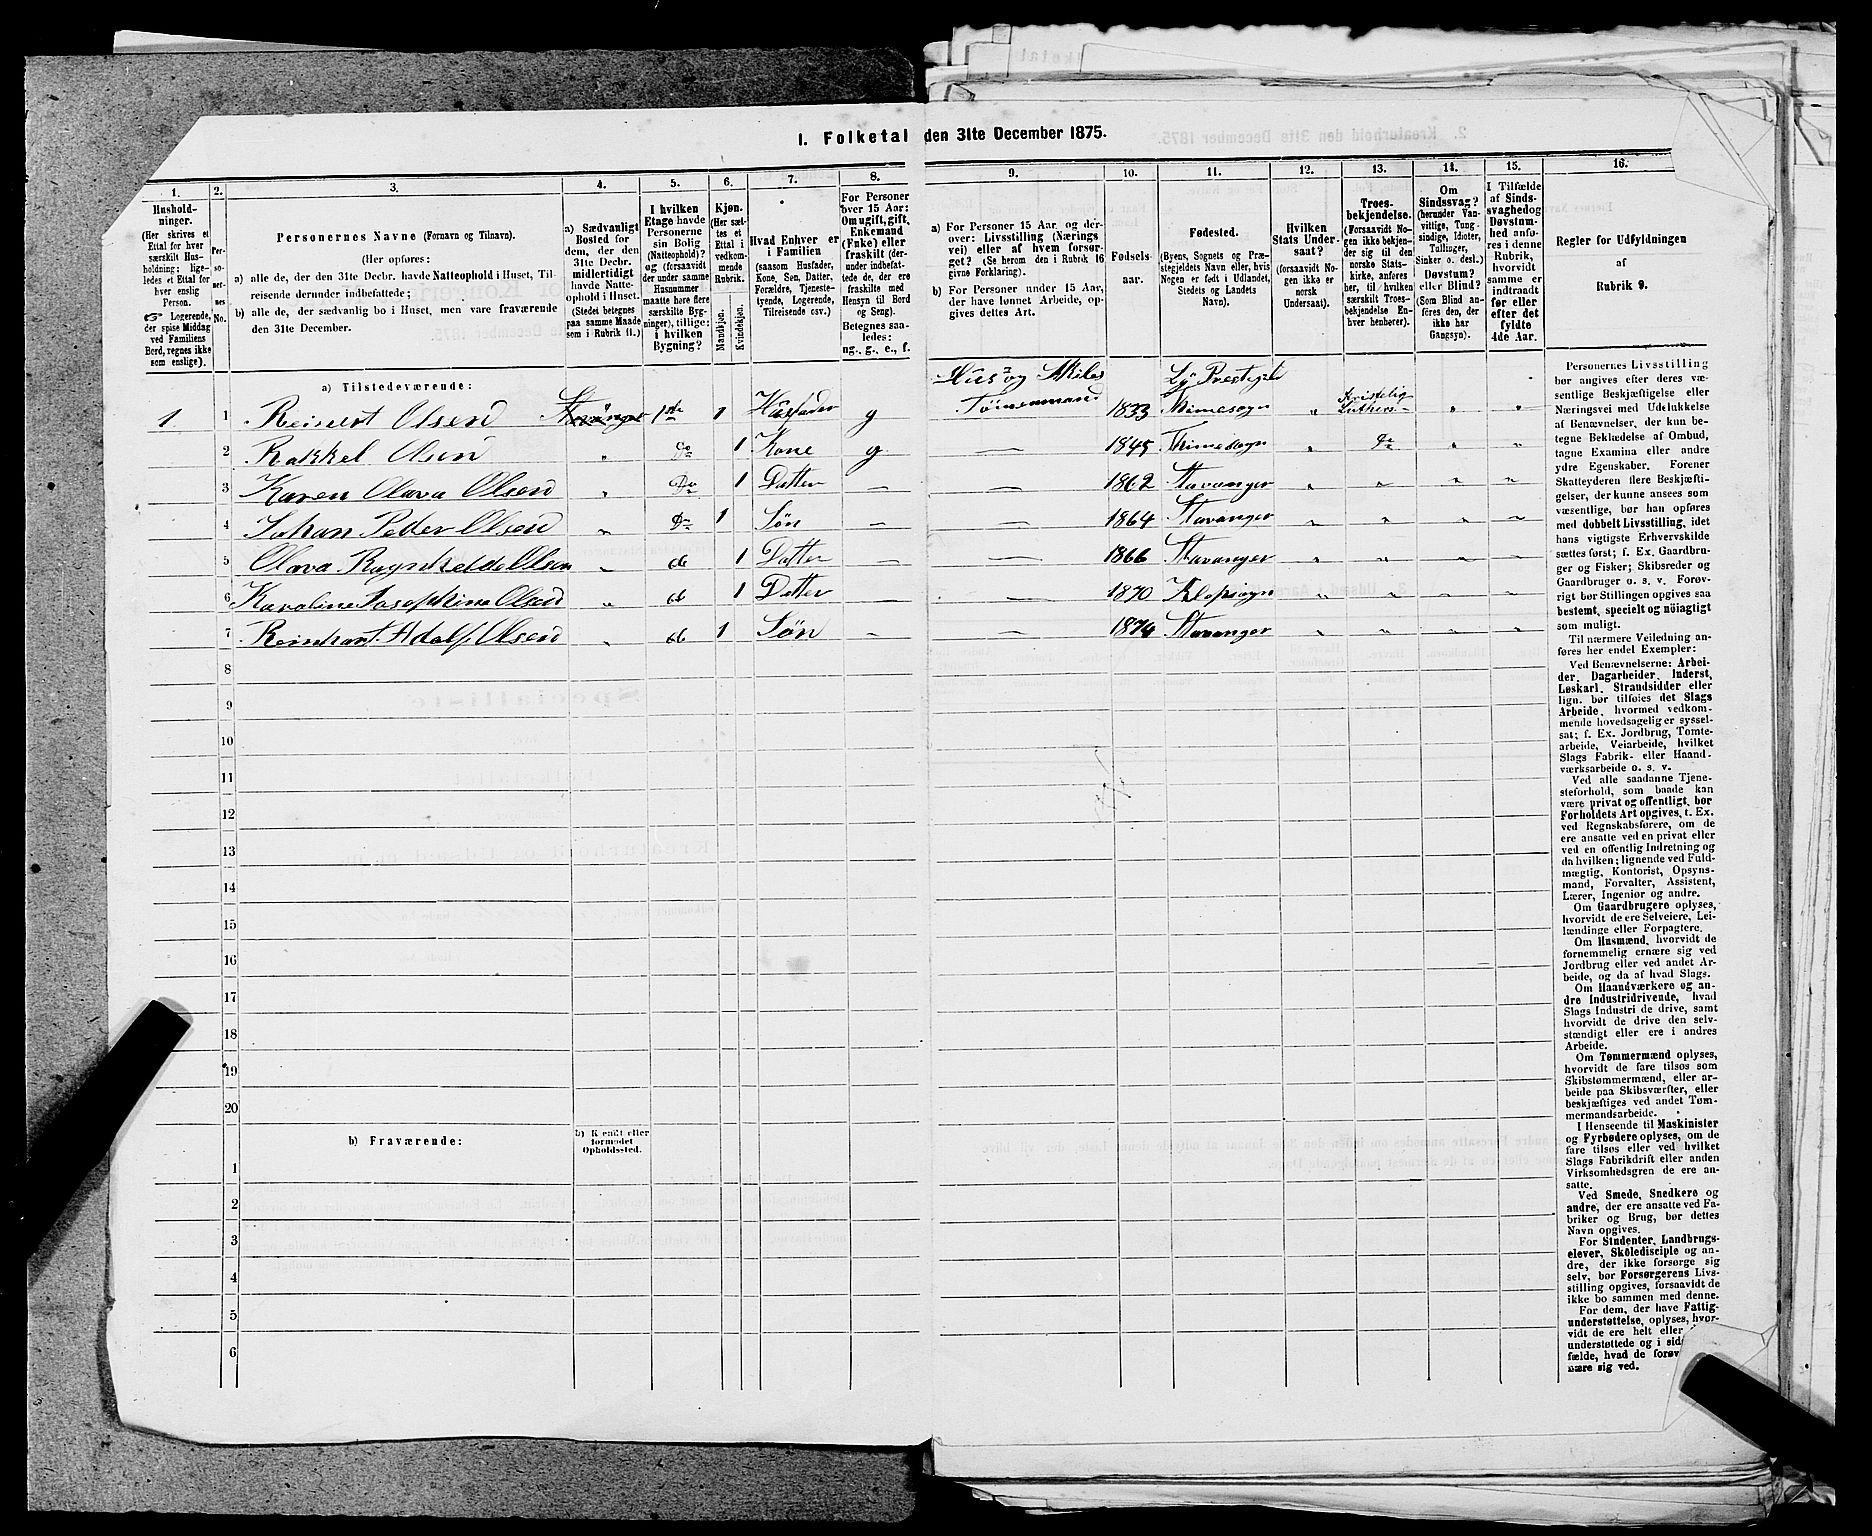 1. Folketal den 31te December 1875.
1. 2. 3. 4. 5. 6. 7. 8. 9. 10. 11. 12. 13. 14. 15. 16.
Hushold-
ninger.
(Her skrives et
Ettal for hver
særskilt Hus-
holdning; lige-
ledes et Ettal for
hver enslig
Person.
☞ Logerende,
der spise Middag
ved Familiens
Bord, regnes ikke
som enslige).
Per-
so-
ner-
nes
No.
Personernes Navne (Fornavn og Tilnavn).
(Her opføres:
a) alle de, der den 31te Decbr. havde Natteophold i Huset, Til-
reisende derunder indbefattede;
b) alle de, der sædvanlig bo i Huset, men vare fraværende
den 31te December.
a) Sædvanligt
Bosted for
dem, der den
31te Decbr.
midlertidigt
havde Natte-
ophold i Huset.
(Stedet betegnes
paa samme Maade
som i Rubrik 11.)
I hvilken
Etage havde
Personerne
sin Bolig
(Natteophold)?
og (forsaavidt
der under samme
Husnummer
maatte høre flere
særskilte Byg-
ninger), tillige:
i hvilken
Bygning?
Kjøn.
(Her sæt-
tes et
Ettal i
vedkom-
mende
Rubrik.
Mandkjøn.
Kvindekjøn.
Hvad Enhver er
i Familien
(saasom Husfader,
Kone, Søn, Datter,
Forældre, Tjeneste-
tyende, Logerende,
Tilreisende osv.)
For Personer
over 15 Aar:
Om ugift, gift,
Enkemand
(Enke) eller
fraskilt (der-
under indbefat-
tede de, der ere
fraskilte med
Hensyn til Bord
og Seng).
Betegnes saa-
ledes:
ug., g., e., f.
a) For Personer 15 Aar og der-
over: Livsstilling (Nærings
vei) eller af hvem forsør-
get? (Se herom den i Rubrik 16
givne Forklaring).
b) For Personer under 15 Aar,
der have lønnet Arbeide, op-
gives dettes Art.
Fødsels-
aar.
Fødested.
(Byens, Sognets og Præ-
stegjeldets Navn eller, hvis
Nogen er født i Udlandet,
Stedets og Landets
Navn).
Hvilken
Stats Under-
saat?
(forsaavidt No-
gen ikke er
norsk
Undersaat).
Troes-
bekjendelse.
(Forsaavidt No-
gen ikke bekjen-
der sig til den
norske Stats-
kirke, anføres
her, til hvilken
særskilt Troes-
bekjendelse En-
hver henhører).
Om
Sindssvag?
(herunder Van-
vittige, Tung-
sindige, Idioter,
Tullinger,
Sinker o. desl.)
Døvstum?
eller Blind?
(Som Blind an-
føres den, der
ikke har
Gangsyn).
I Tilfælde
af Sinds-
svaghed og
Døvstum-
hed anfø-
res i denne
Rubrik,
hvorvidt
samme er
indtraadt
før eller
efter det
fyldte
4de Aar.
Regler for Udfyldningen
af
Rubrik 9.
a) Tilstedeværende:
1 1 Reinert Olsen Stavanger 1ste 1 Husfader g Hus og Skibs Tømmermand 1833 Lÿ Prestegjeld Thimesogn " Kristelig Luthers- " "
2 Rakkel Olsen " Do 1 Kone g — 1845 Thimesogn " Do " "
3 Karen Olava Olsen " Do 1 Datter — — 1862 Stavanger " " " "
4 Johan Peder Olsen " Do 1 Søn — — 1864 Stavanger " " " "
5 Olava Ragnhelde Olsen " do 1 Datter — — 1866 Stavanger " " " "
6 Karoline Josephine Olsen " do 1 Datter — — 1870 Klepsogn " " " "
7 Reinhart Adolf Olsen " do 1 Søn — — 1874 Stavanger " " " "
8
9
10
11
12
13
14
15
16
17
18
19
20
b) Fraværende:
b) Kjendt eller
formodet
Opholdssted.
1
2
3
4
5
6
Personernes Livsstilling
bør angives efter deres væ-
sentlige Beskjæftigelse eller
Næringsvei med Udelukkelse
af Benævnelser, der kun be-
tegne Beklædelse af Ombud,
tagne Examina eller andre
ydre Egenskaber. Forener
Skatteyderen flere Beskjæfti-
gelser, der kunne ansees som
væsentlige, bør han opføres
med dobbelt Livsstilling, idet
hans vigtigste Erhvervskilde
sættes først; f. Ex. Gaardbru-
ger og Fisker; Skibsreder og
Gaardbruger o. s. v. Forøv-
rigt bør Stillingen opgives saa
bestemt, specielt og nøiagtigt
som muligt.
Til nærmere Veiledning an-
føres her endel Exempler:
Ved Benævnelserne: Arbei-
der, Dagarbeider, Inderst,
Løskarl, Strandsidder eller
lign. bør tilføies det Slags
Arbeide, hvormed vedkom-
mende hovedsagelig er syssel-
sat; f. Ex. Jordbrug, Tomte-
arbeide, Veiarbeide, hvilket
Slags Fabrik- eller Haand-
værksarbeide o. s. v.
Ved alle saadanne Tjene-
steforhold, som baade kan
være privat og offentligt, bør
Forholdets Art opgives, t. Ex.
ved Regnskabsførere, om de
ere ansatte ved en privat eller
ved en offentlig Indretning og
da hvilken; lignende ved Fuld-
mægtig, Kontorist, Opsyns-
mand, Forvalter, Assistent,
Lærer, Ingeniør og andre.
Om Gaardbrugere oplyses,
hvorvidt de ere Selveiere, Lei-
lændinge eller Forpagtere.
Om Husmænd, hvorvidt de
fornemmelig ernære sig ved
Jordbrug eller ved andet Ar-
beide, og da af hvad Slags.
Om Haandværkere og an-
dre Industridrivende, hvad
Slags Industri de drive, samt
hvorvidt de drive den selv-
stændigt eller ere i andres
Arbeide.
Om Tømmermænd oplyses,
hvorvidt de fare tilsøs som
Skibstømmermænd, eller ar-
beide paa Skibsværfter, eller
beskjæftiges ved andet Tøm-
mermandsarbeide.
I Henseende til Maskinister
og Fyrbødere oplyses, om de
fare tilsøs eller ved hvilket
Slags Fabrikdrift eller anden
Virksomhedsgren de ere an-
satte.
Ved Smede, Snedkere og
andre, der ere ansatte ved Fa-
briker og Brug, bør dettes
Navn opgives.
For Studenter, Landbrugs-
elever, Skoledisciple og an-
dre, der ikke forsørge sig
selv, bør Forsørgerens Livs-
stilling opgives, forsaavidt de
ikke bo sammen med denne.
For dem, der have Fattig-
understøttelse, oplyses, hvor-
vidt de ere helt eller
understøttede og i
fælde, hvad de
nære sig ved.